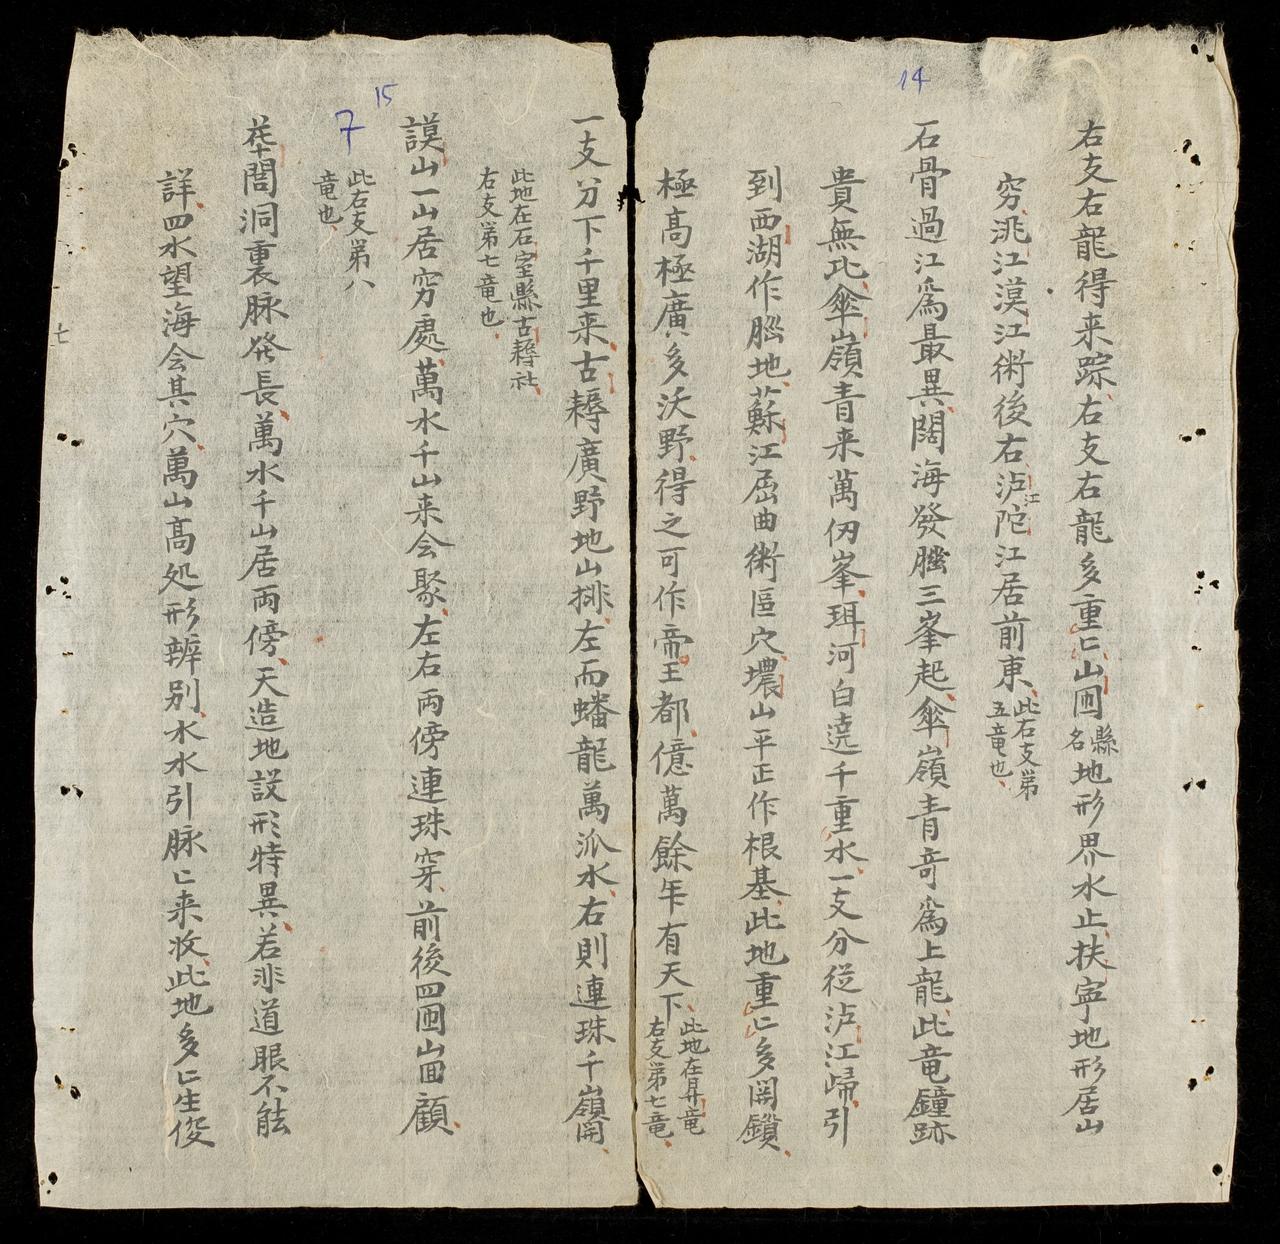 14
右支右龍得来踪右支右龍多重〻山囬縣名地形界水止扶寧地形居山
窮洮江漠江術後右泸江陀江居前東此右支第五竜也
石骨過江為最異闊海發𦛨三峯起傘嶺青竒為上龍此竜鐘跡
貴無比傘嶺青来萬仞峯珥河白遶千重水一支分從泸江歸引
到西湖作𦛨地蘇江屈曲術區穴濃山平正作根基此地重〻多関鎖
極高極廣多沃野得之可作帝王都億萬餘年有天下此地在昇竜右支第七竜
一支分下千里来古耨廣野地山排左而蟠龍萬派水右則連珠千嶺開
此地在石室縣古耨社
右支第七竜也
15
7
謨山一山居穷處萬水千山来会聚左右両傍連珠穿前後四囬山面顧
此右支第八
竜也
苯閭洞裏脉発長萬水千山居両傍天造地設形特異若非道眼不能
詳四水望海会其穴萬山高処形辨别水水引脉〻来收此地多〻生俊
七